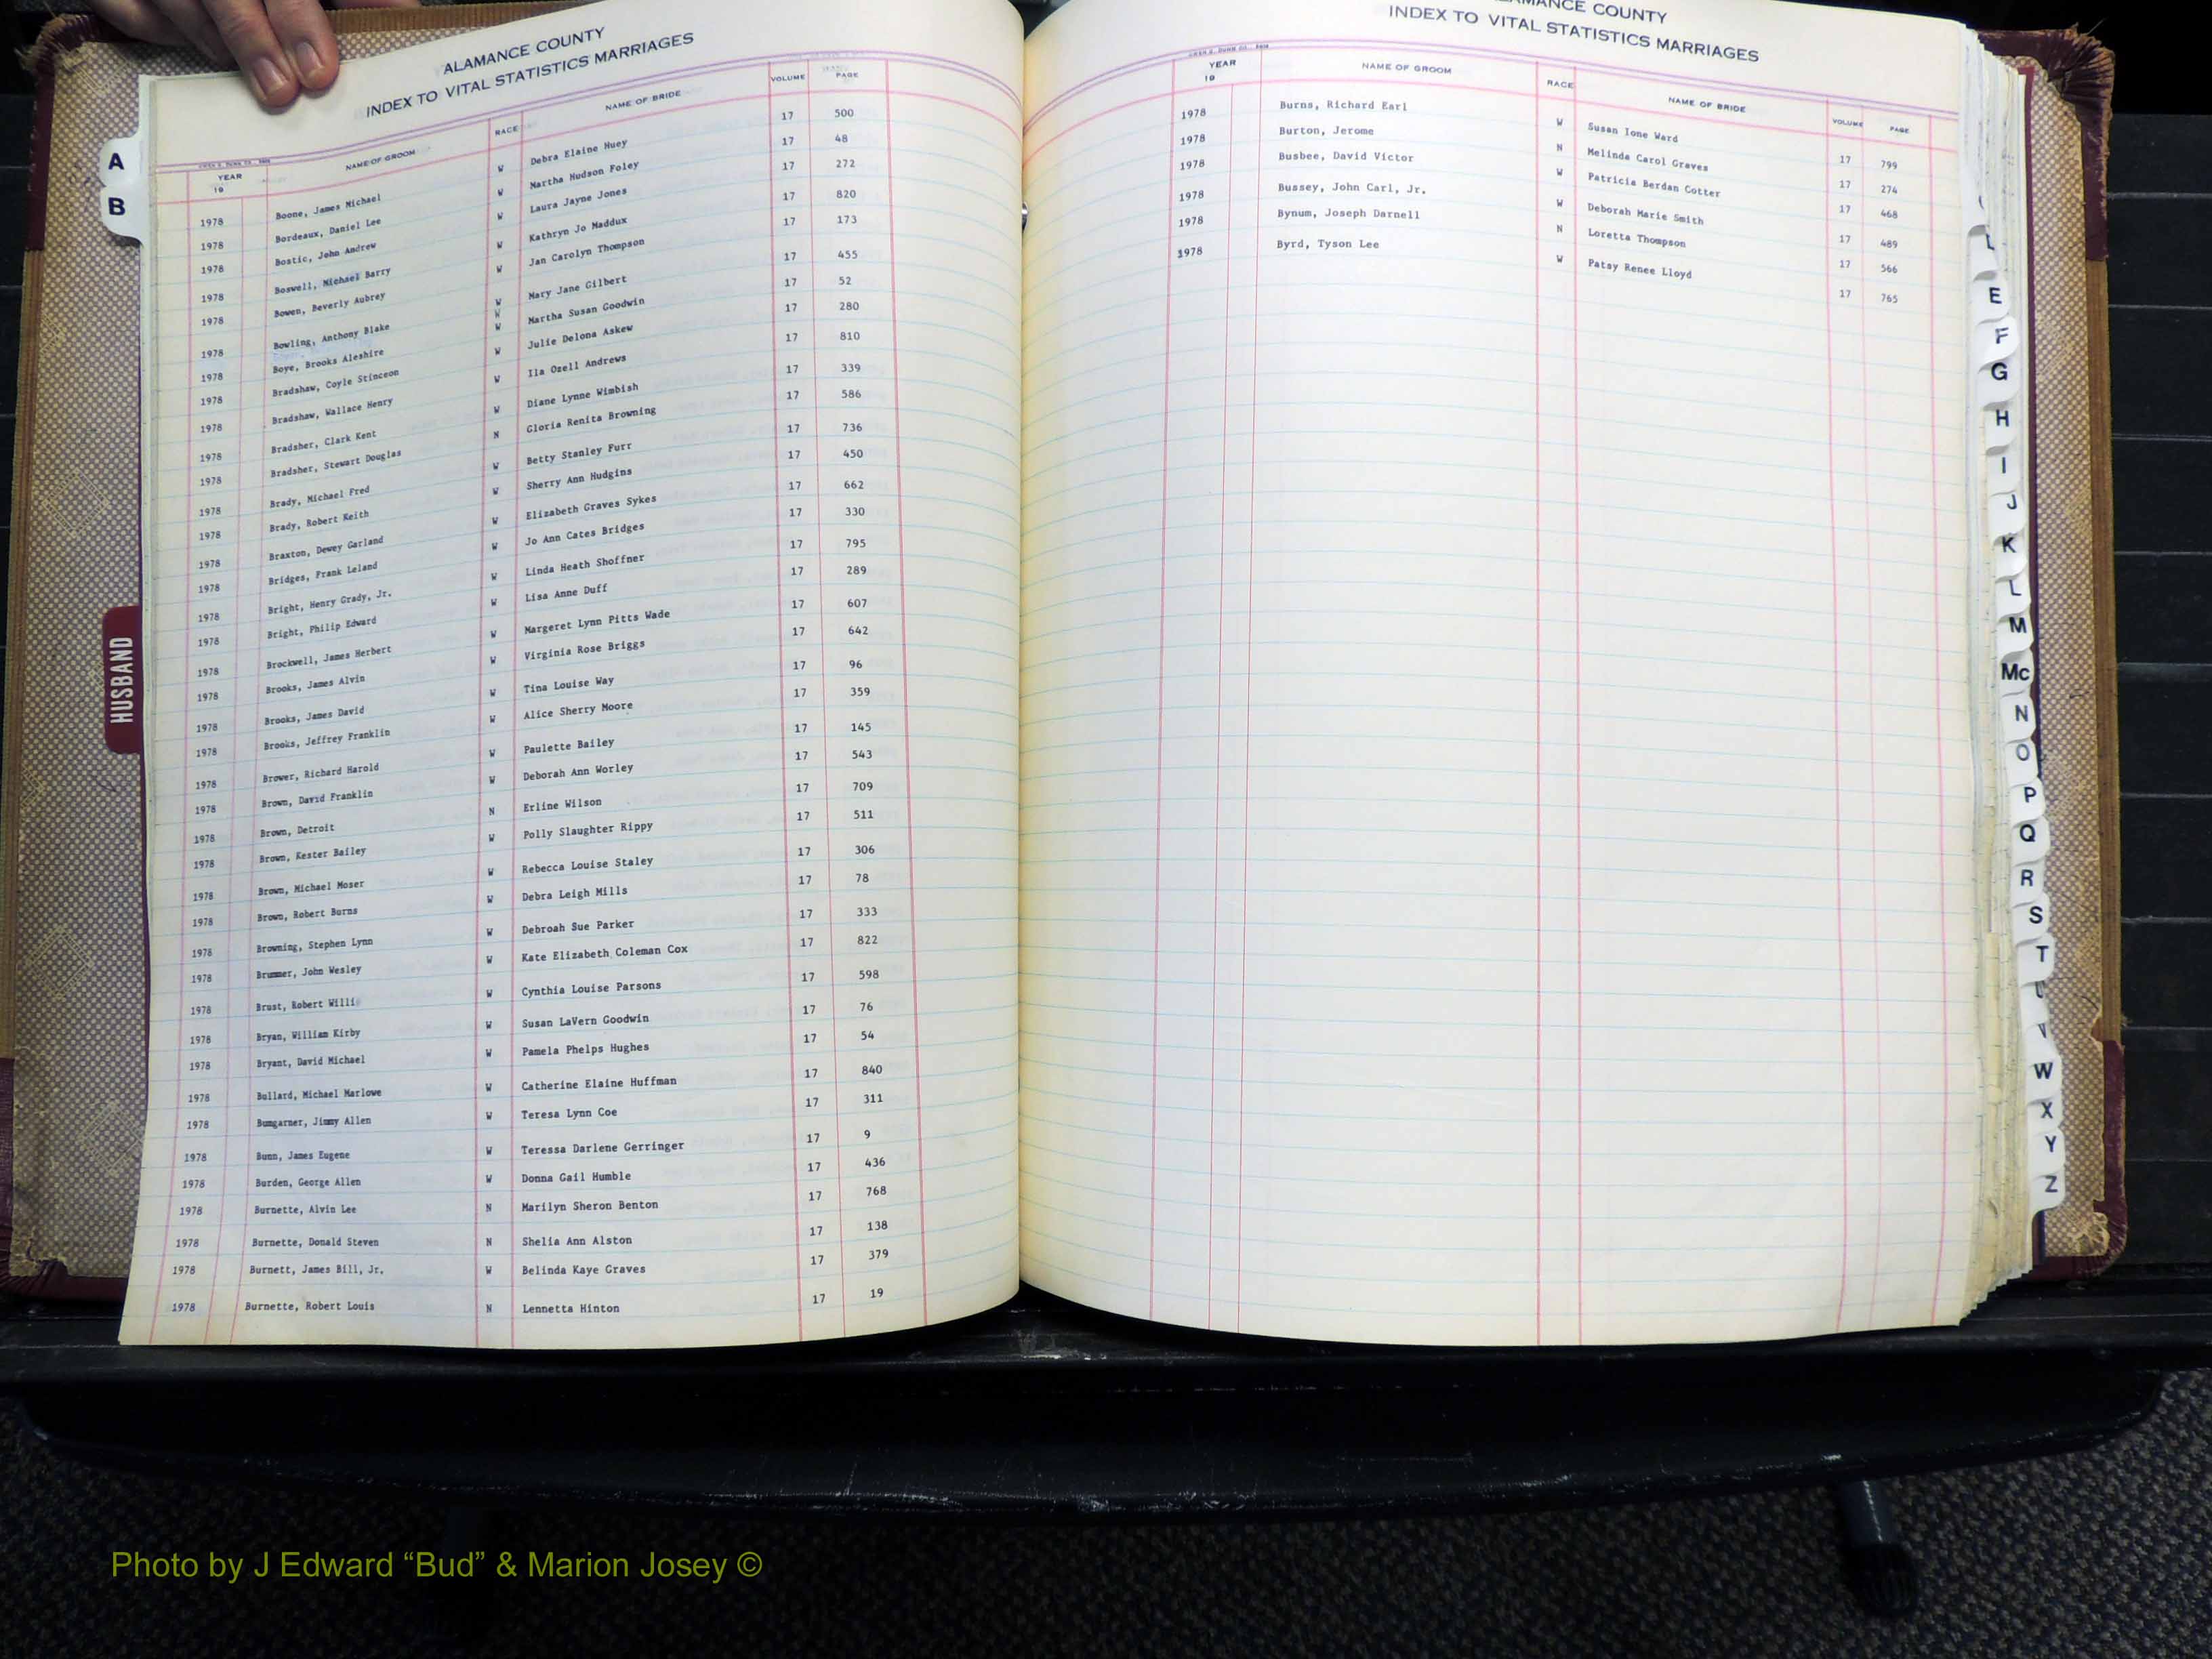 ALAMANCE COUNTY
INDEX TO VITAL STATISTICS MARRIAGES
YEAR 19 NAME OF GROOM RACE NAME OF BRIDE VOLUME PAGE
1978 Boone, James Michael W Debra Elaine Huey 17 500
1978 Bordeaux, Daniel Lee W Martha Hudson Foley 17 48
1978 Bostic, John Andrew W Laura Jayne Jones 17 272
1978 Boswell, Michael Barry W Kathryn Jo Maddux 17 820
1978 Bowen, Beverly Aubrey W Jan Carolyn Thompson 17 173
1978 Bowling, Anthony Blake W Mary Jane Gilbert 17 455
1978 Boye, Brooks Aleshire W Martha Susan Goodwin 17 52
1978 Bradshaw, Coyle Stinceon W Julie Delona Askew 17 280
1978 Bradshaw, Wallace Henry W Ila Ozell Andrews 17 810
1978 Bradsher, Clark Kent W Diane Lynne Wimbish 17 339
1978 Bradsher, Stewart Douglas N Gloria Renita Browning 17 586
1978 Brady, Michael Fred W Betty Stanley Furr 17 736
1978 Brady, Robert Keith W Sherry Ann Hudgins 17 450
1978 Braxton, Dewey Garland W Elizabeth Graves Sykes 17 662
1978 Bridges, Frank Leland W Jo Ann Cates Bridges 17 330
1978 Bright, Henry Grady, Jr. W Linda Heath Shoffner 17 795
1978 Bright, Philip Edward W Lisa Anne Duff 17 289
1978 Brockwell, James Herbert W Margeret Lynn Pitts Wade 17 607
1978 Brooks, James Alvin W Virginia Rose Briggs 17 642
1978 Brooks, James David W Tina Louise Way 17 96
1978 Brooks, Jeffrey Franklin W Alice Sherry Moore 17 359
1978 Brower, Richard Harold W Paulette Bailey 17 145
1978 Brown, David Franklin W Deborah Ann Worley 17 543
1978 Brown, Detroit N Erline Wilson 17 709
1978 Brown, Kester Bailey W Polly Slaughter Rippy 17 511
1978 Brown, Michael Moser W Rebecca Louise Staley 17 306
1978 Brown, Robert Burns W Debra Leigh Mills 17 78
1978 Browning, Stephen Lynn W Debroah Sue Parker 17 333
1978 Brummer, John Wesley W Kate Elizabeth Coleman Cox 17 822
1978 Brust, Robert Willi W Cynthia Louise Parsons 17 598
1978 Bryan, William Kirby W Susan LaVern Goodwin 17 76
1978 Bryant, David Michael W Pamela Phelps Hughes 17 54
1978 Bullard, Michael Marlowe W Catherine Elaine Huffman 17 840
1978 Bumgarner, Jimmy Allen W Teresa Lynn Coe 17 311
1978 Bunn, James Eugene W Teressa Darlene Gerringer 17 9
1978 Burden, George Allen W Donna Gail Humble 17 436
1978 Burnette, Alvin Lee N Marilyn Sheron Benton 17 768
1978 Burnette, Donald Steven N Shelia Ann Alston 17 138
1978 Burnett, James Bill, Jr. W Belinda Kaye Graves 17 379
1978 Burnette, Robert Louis N Lennetta Hinton 17 19
A
B
HUSBAND
COUNTY
INDEX TO VITAL STATISTICS MARRIAGES
YEAR 19 NAME OF GROOM RACE NAME OF BRIDE VOLUME PAGE
1978 Burns, Richard Earl W Susan Ione Ward 17 799
1978 Burton, Jerome N Melinda Carol Graves 17 274
1978 Busbee, David Victor W Patricia Berdan Cotter 17 468
1978 Bussey, John Carl, Jr. W Deborah Marie Smith 17 489
1978 Bynum, Joseph Darnell N Loretta Thompson 17 566
1978 Byrd, Tyson Lee W Patsy Renee Lloyd 17 765
E
F
G
H
I
J
K
L
M
Mc
N
O
P
Q
R
S
T
U
V
W
X
Y
Z
Photo by J Edward “Bud” & Marion Josey ©